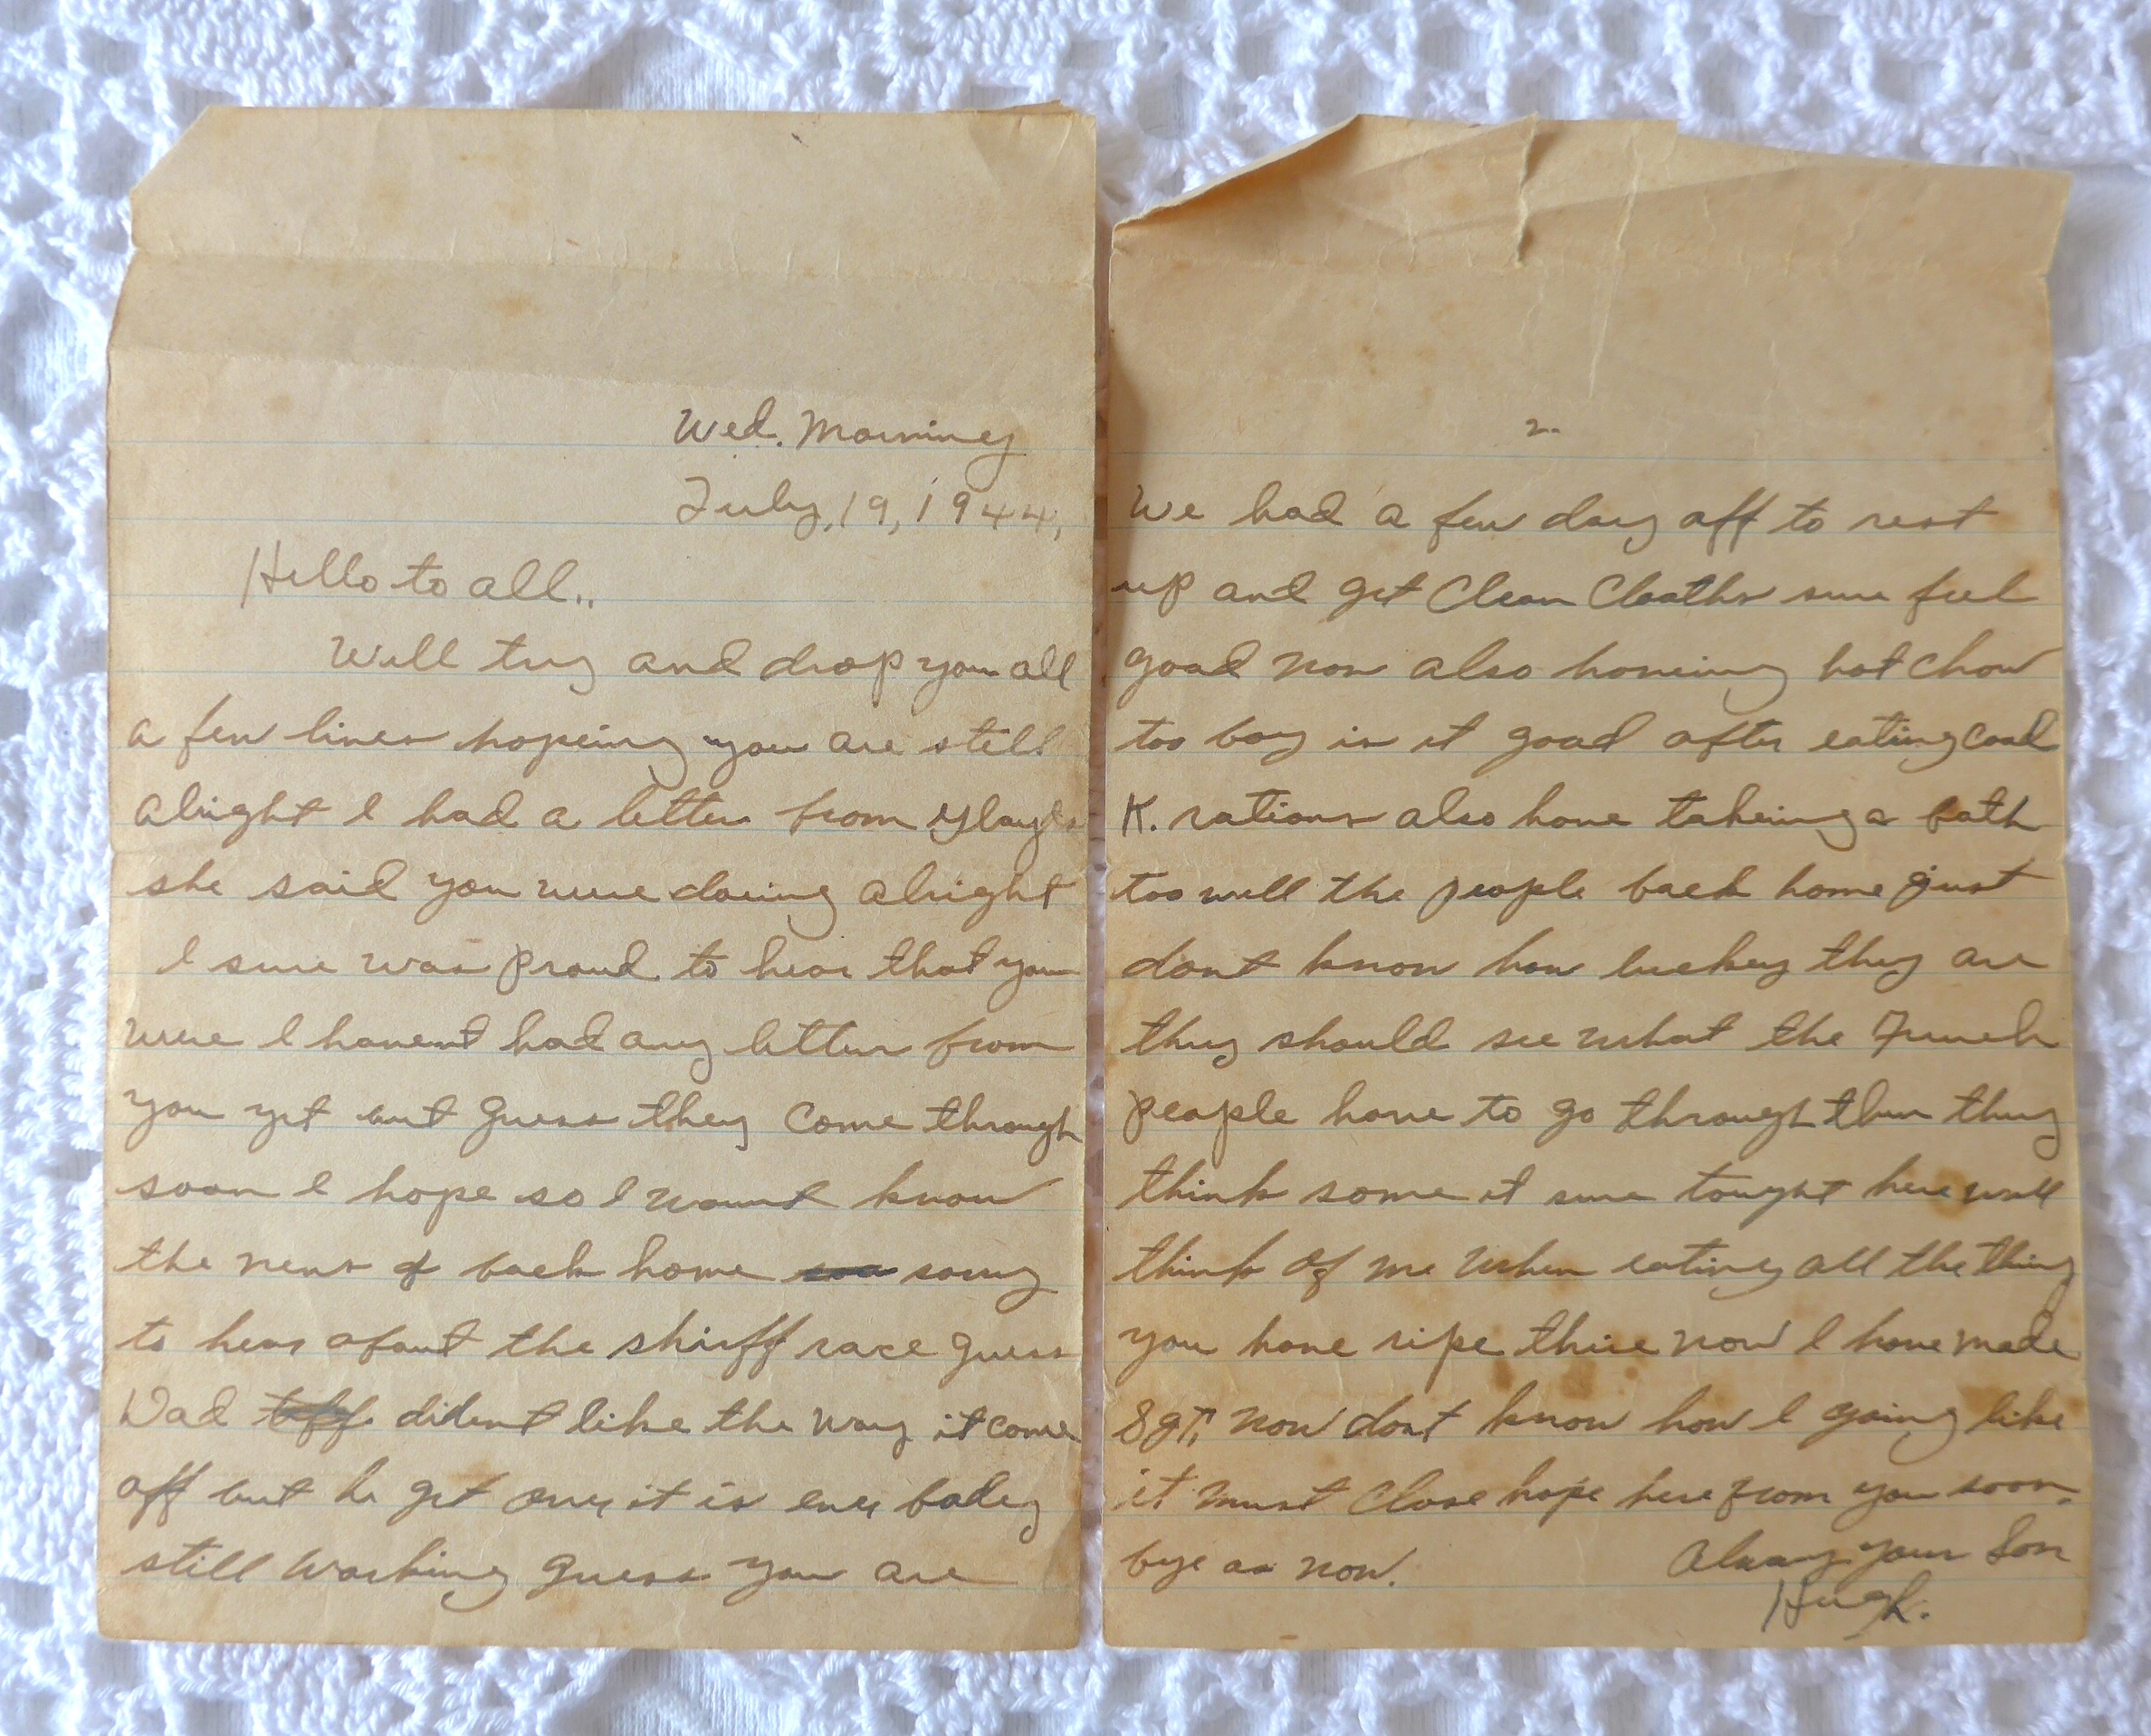 Wed. Morning
July, 19, 1944,
Hello to all..
Will try and drop you all
a few lines hopeing you are still
alright I had a letter from
she said you were doeing alright
I sure was proud to hear that you
were I havent had any letters from
you yet but guess they come through
soon I hope so I wount know
the news of back home sorry
to hear about the shirff race guess
Dad dident like the way it come
off but he get over it is ever badey
still working guess you are
2.
We had a few day off to rest
up and get Clean Cloaths sure feel
good now also haveing hot chow
too boy is it good after eating coad
K. rations also have takeing a bath
too well the people back home just
dont know how luckey they are
they should see what the French
people have to go through then they
think some it sure tought here well
think of me when eating all the thing
you have ripe thire now I have made
Sgt, now dont know how I going like
it must Close hope here from you soon.
bye as now.
Alway your Son
Hugh.